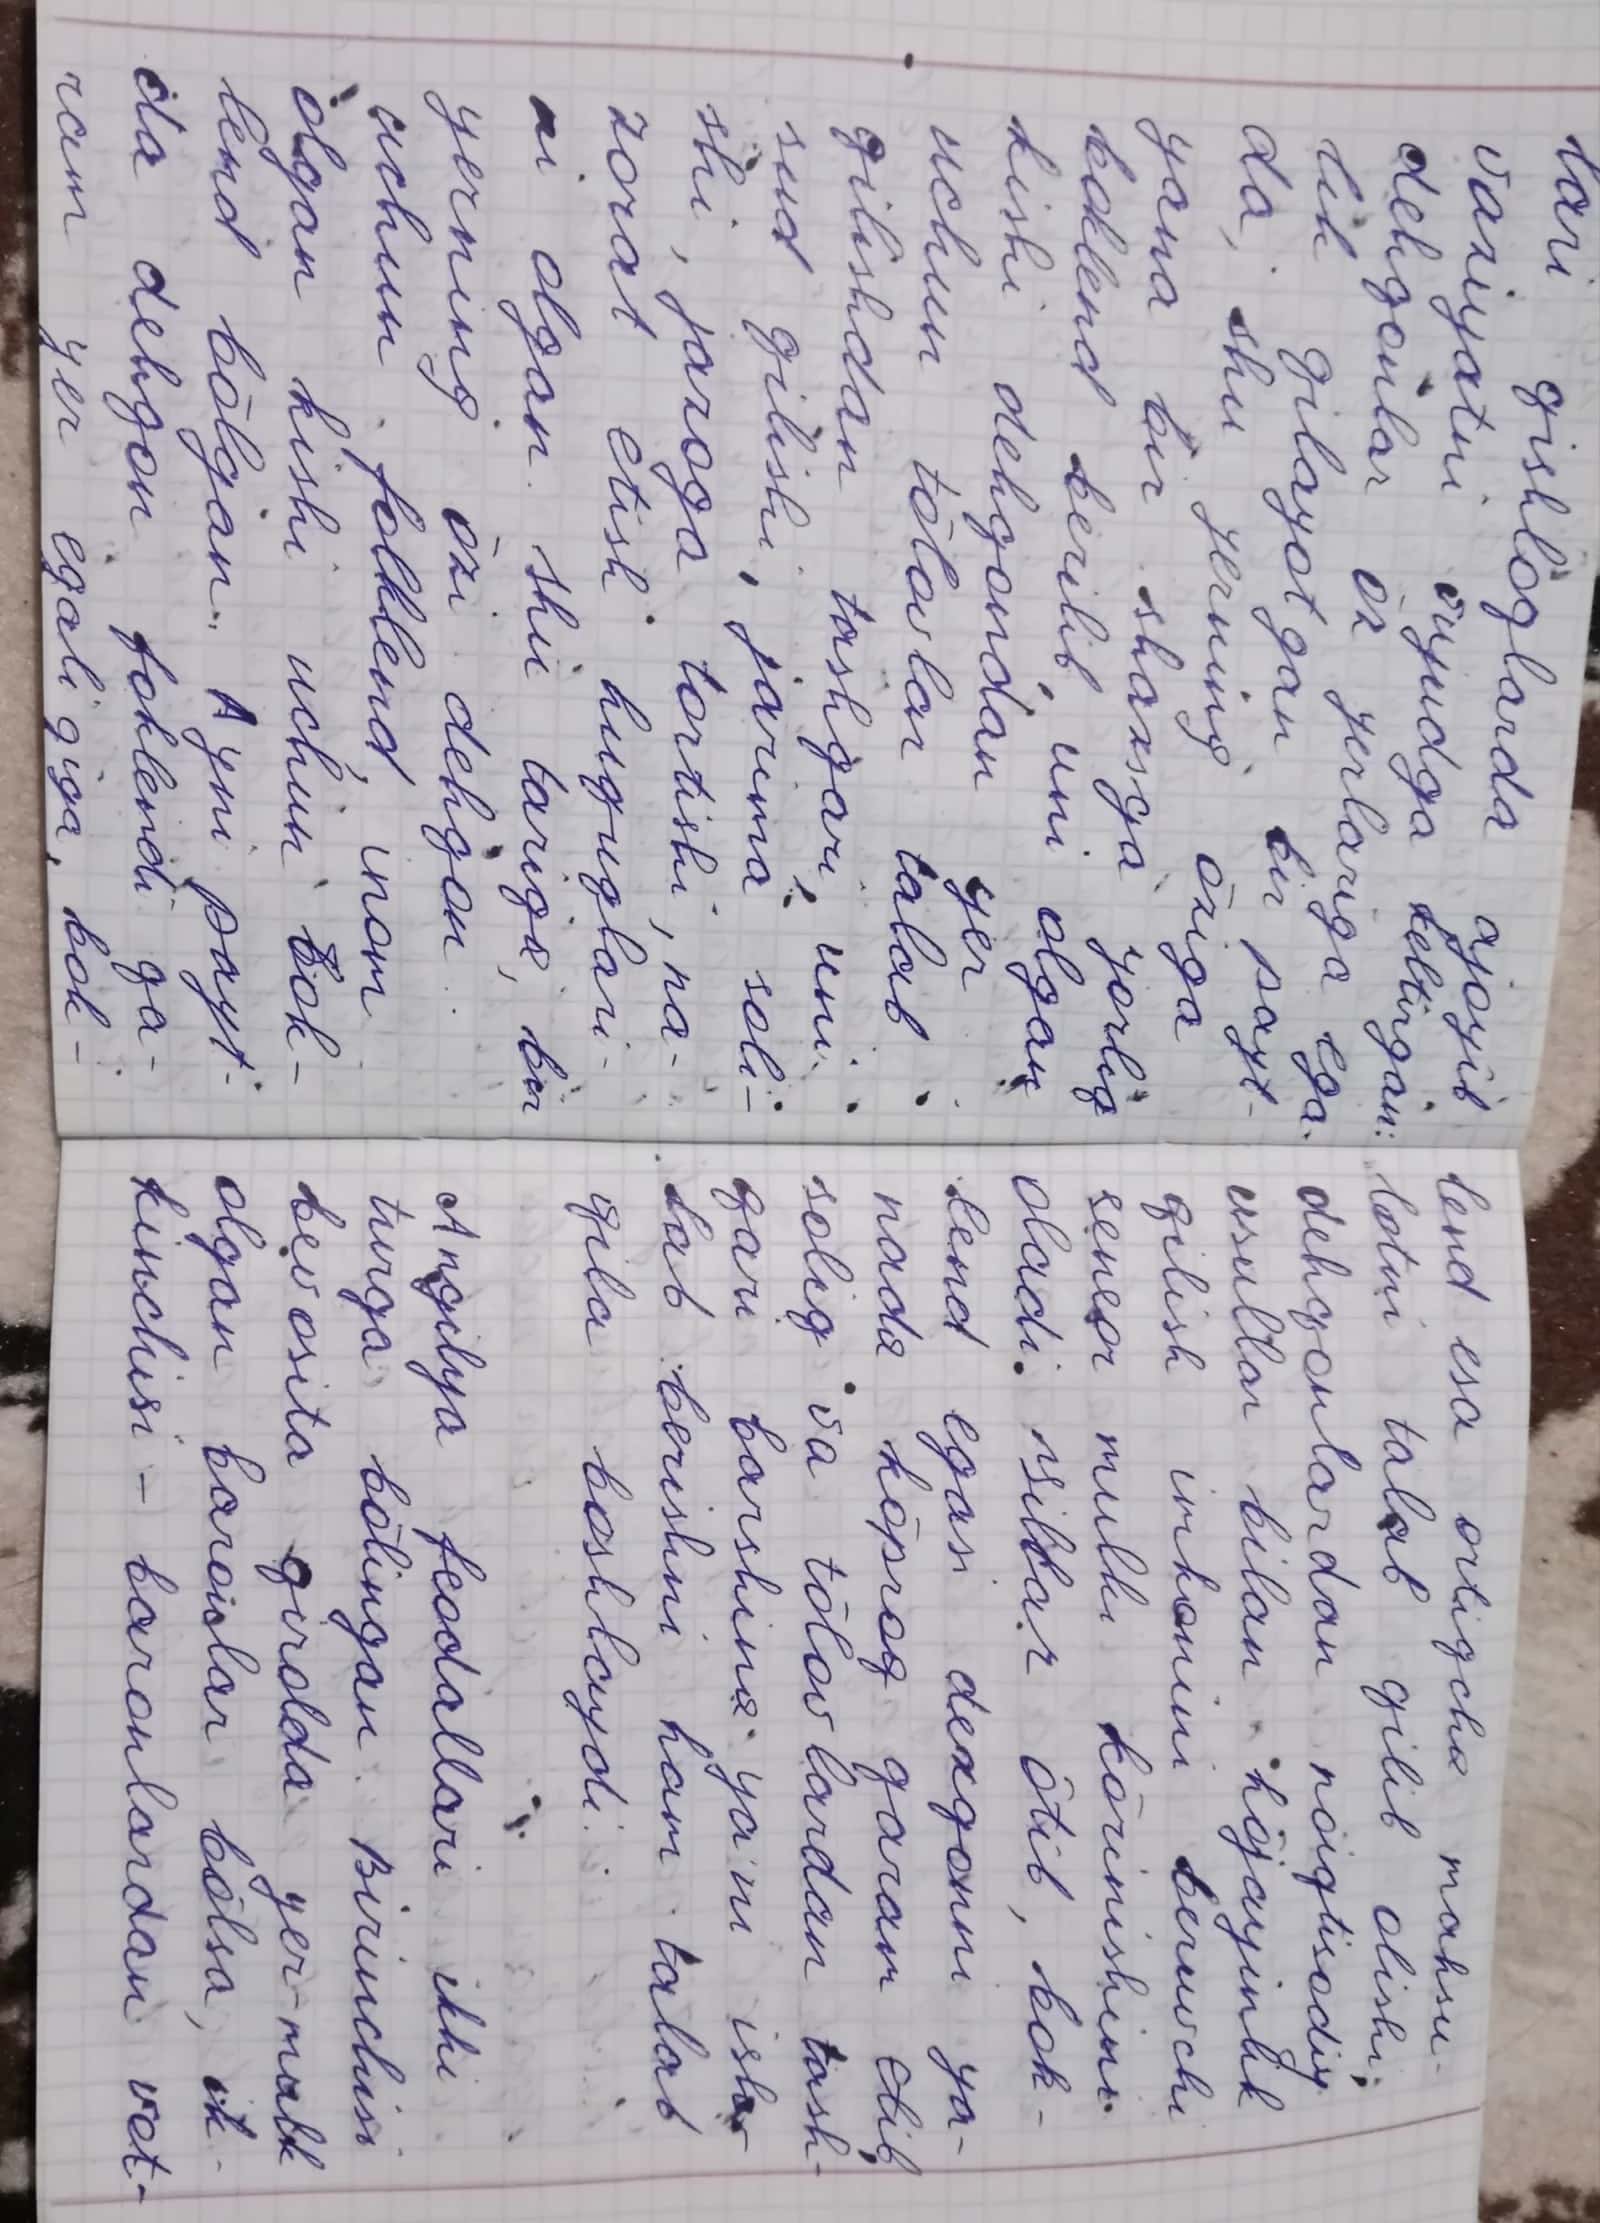 lari qishlōqlarda ajoyib
vaziyatni vujudga keltirgan:
dehqonlar ōz yerlariga ega.
lik qilayotgan bir payt-
da, shu yerning ōziga
yana bir shaxsga yorliq
boklend berilib, uni olgan
kishi dehqondan yer
uchun tōlovlar talab
qilishdan tashqari, uni
sud qilishi, jarima soli-
shi, jazoga tortishi, na-
zorat etish huquqlari-
ni olgan. shu tariqa, bir
yerning ōzi dehqon
uchun folklend, inom
olgan kishi uchun bok-
lend bōlgan. Ayni payt-
da dehqon foklendi qa-
ram yer egaligiga, bok-
lend esa ortiqcha mahsu-
lotni talab qilib olishi,
dehqonlardan noiqtisodiy
usullar bilan hōjayinlik
qilish imkonini beruvchi
senor mulki kōrinishini
oladi. Asrlar ōtib, bok-
lend egasi dexqonni ya-
nada kōproq qaram etib
soliq va tōlovlardan tash-
qari barshina ya'ni ishlar
lab berishni ham talab
qila boshlaydi.
Angilya feodallari ikki
turga bōlingan. Birinchisi
bevosita qirolda yer-mulk
olgan baronlar bōlsa, ik-
kinchisi - baronlardan vot-